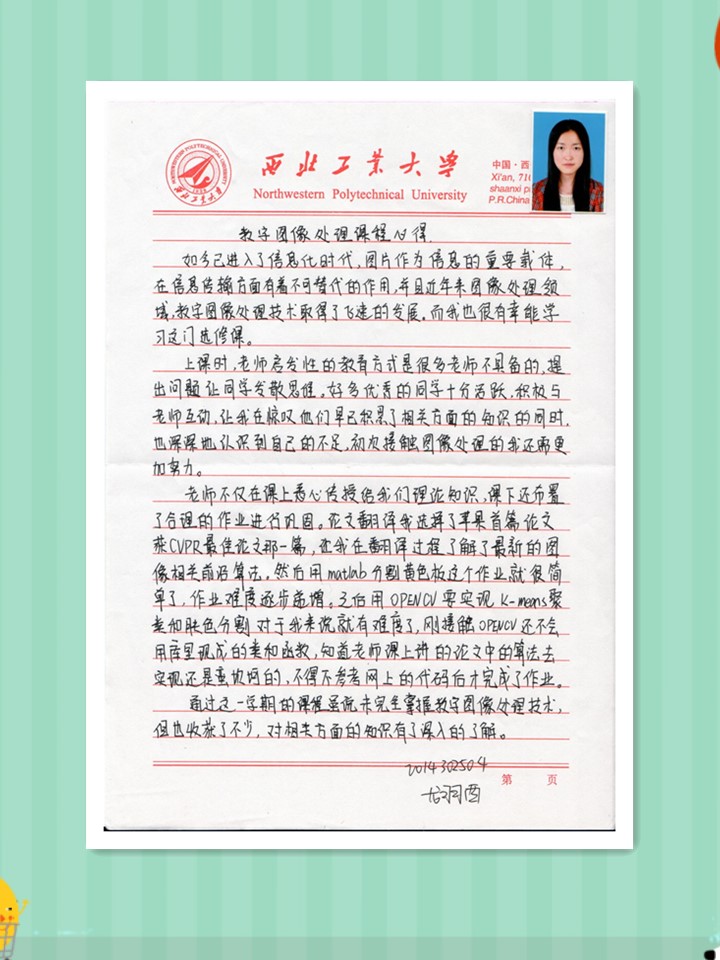 西北工业大学
Northwestern Polytechnical University
中国·西
Xi'an, 710
shaanxi p
P.R.China
数字图像处理课程心得.
如今已进入了信息化时代,图片作为信息的重要载体,
在信息传输方面有着不可替代的作用,并且近年来图像处理领
域,数字图像处理技术取得了飞速的发展。而我也很有幸能学
习这门选修课。
上课时,老师启发性的教育方式是很多老师不具备的,提
出问题让同学发散思维。好多优秀的同学十分活跃,积极与
老师互动,让我在惊叹他们早已积累了相关方面的知识的同时,
也深深地认识到自己的不足,初次接触图像处理的我还需更
加努力。
老师不仅在课上悉心传授给我们理论知识,课下还布置
了合理的作业进行巩固。论文翻译我选择了苹果首篇论文
获CVPR最佳论文那一篇,让我在翻译过程了解了最新的图
像相关前沿算法。然后用matlab分割黄色板这个作业就很简
单了,作业难度逐步递增。之后用OPENCV要实现K-means聚
类和肤色分割对于我来说就有难度了,刚接触OPENCV还不会
用库里现成的类和函数,知道老师课上讲的论文中的算法去
实现还是蛮坎坷的,不得不参考网上的代码后才完成了作业。
通过这一学期的课程虽说未完全掌握数字图像处理技术,
但也收获了不少,对相关方面的知识有了深入的了解。
2014302504
第 页